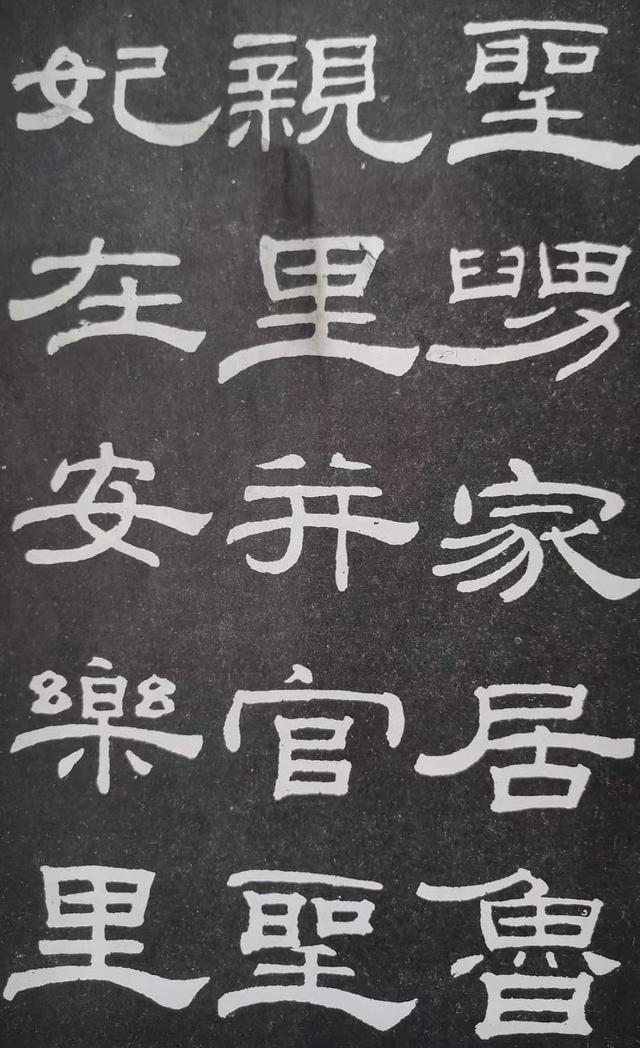 聖舅家居魯
親里并官聖
妃在安樂里